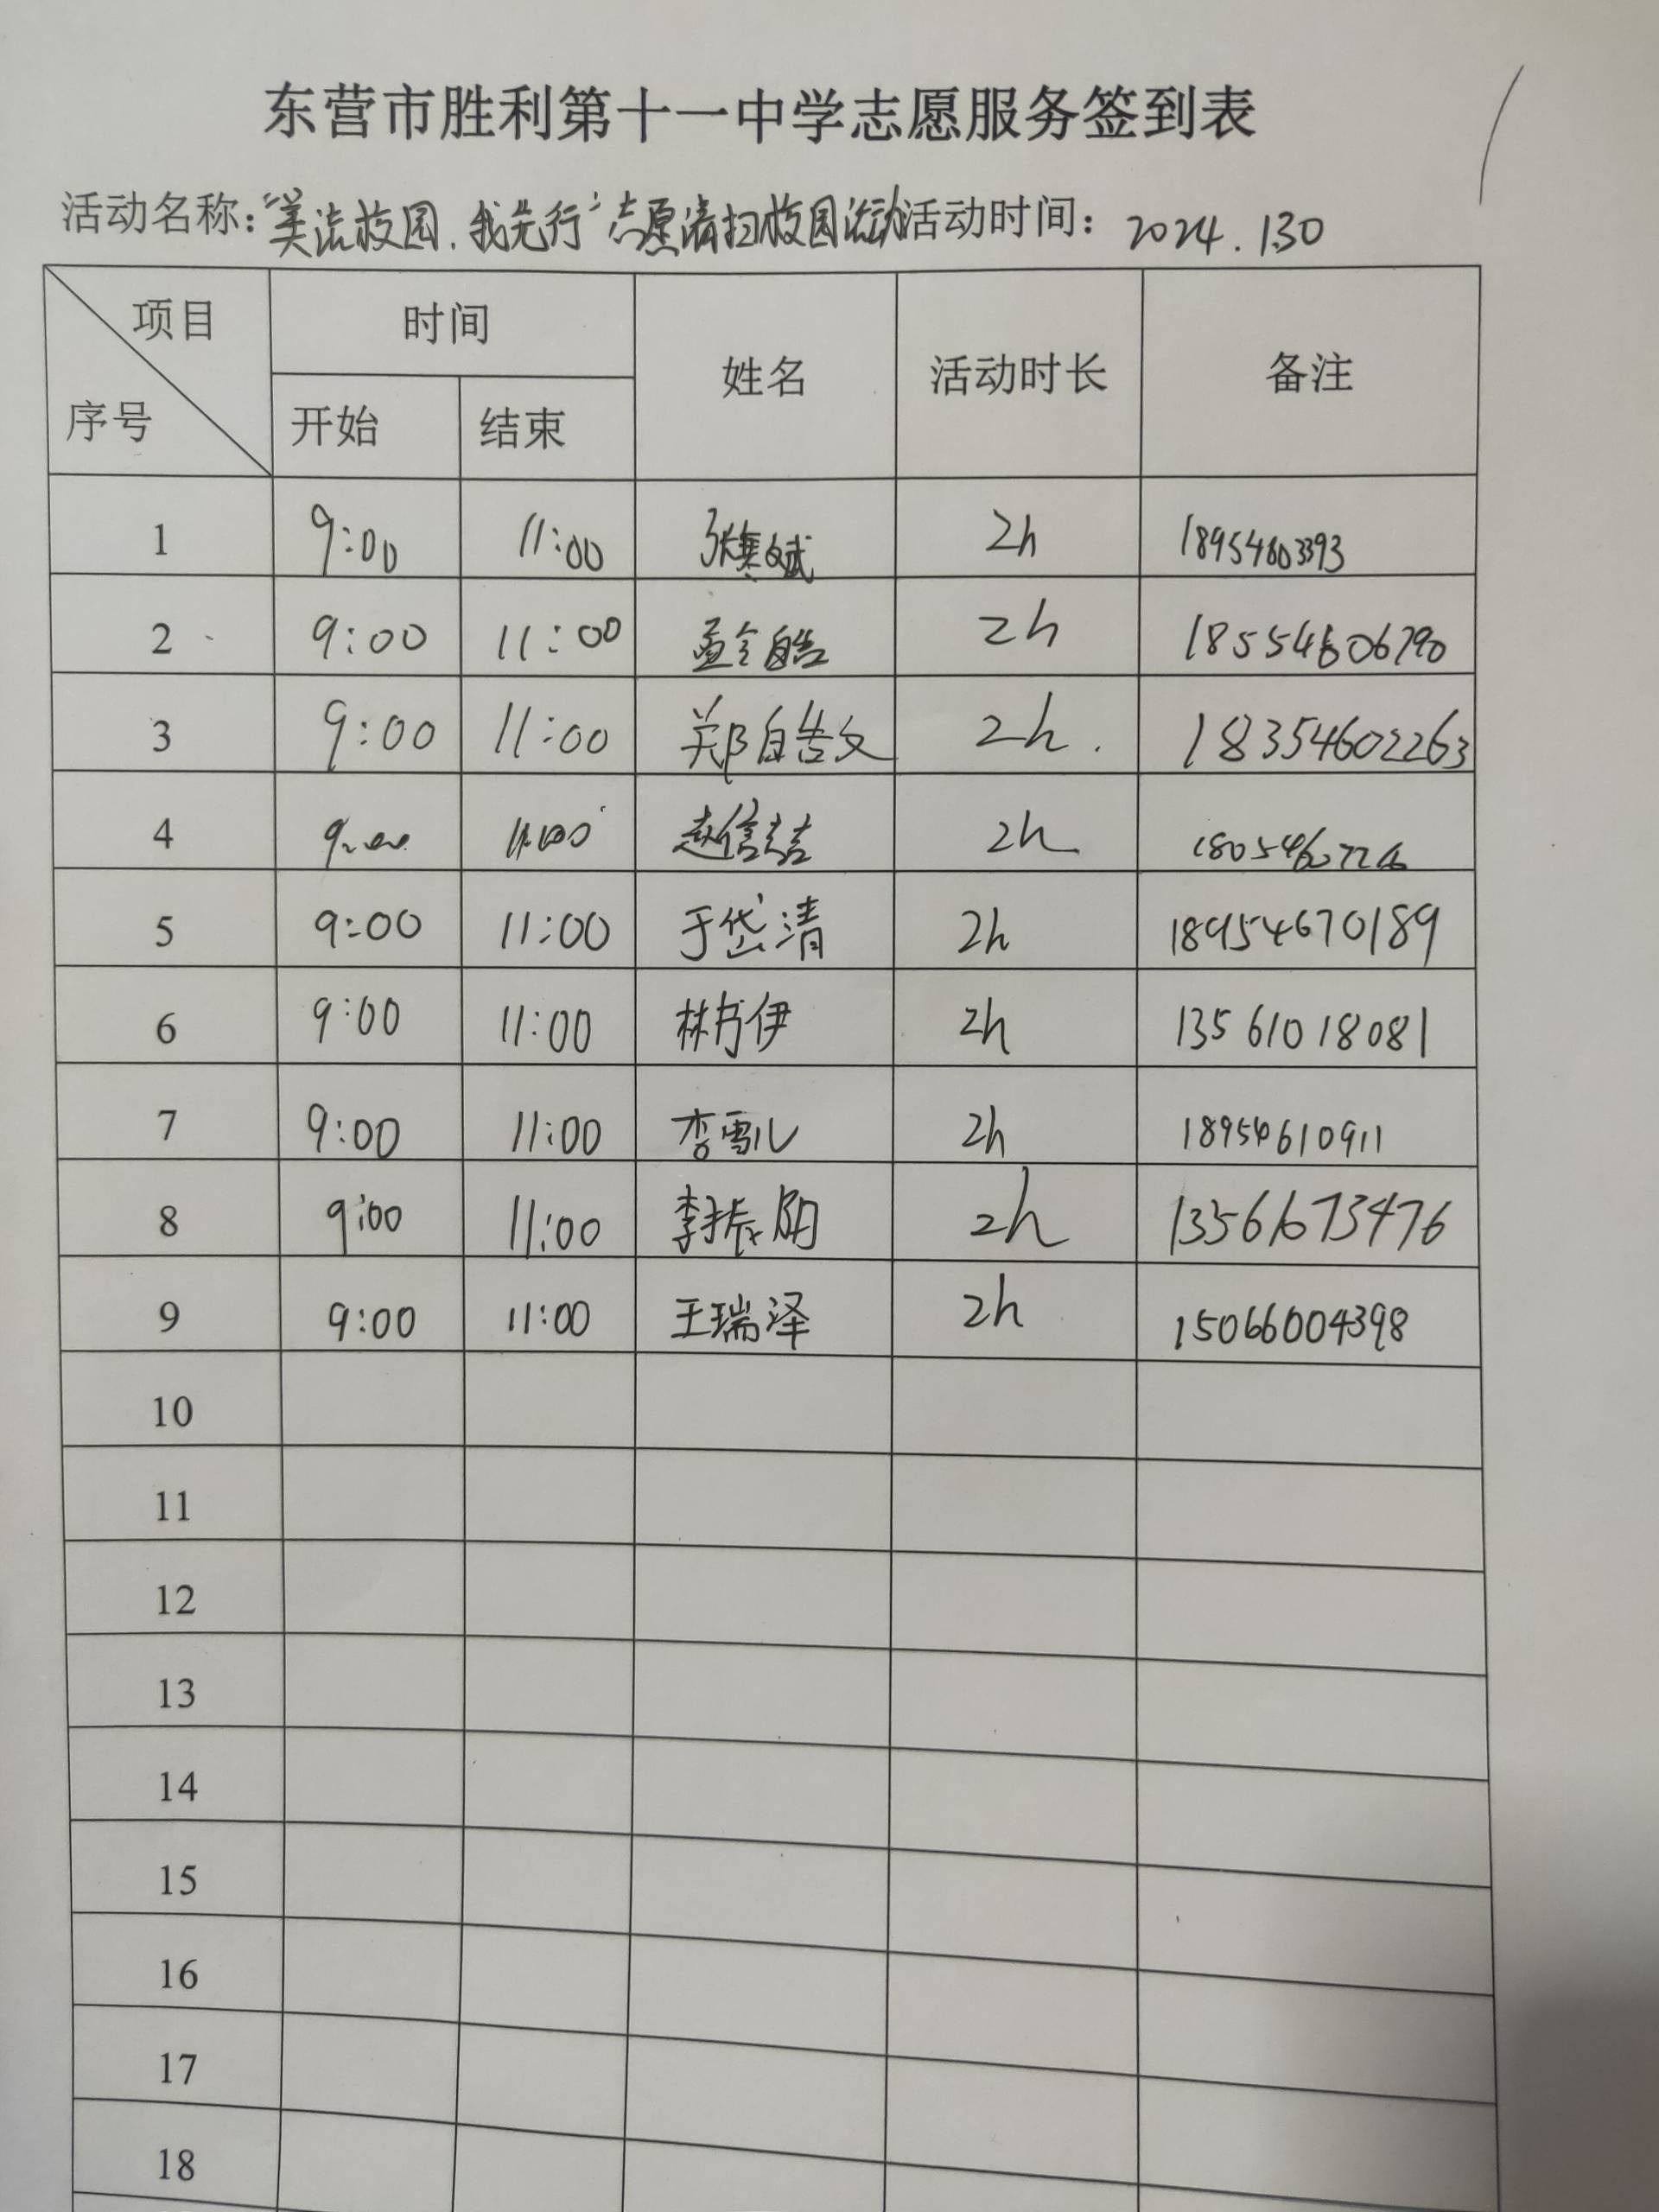 东营市胜利第十一中学志愿服务签到表
活动名称:“美洁校园,我先行”志愿清扫校园活动 活动时间: 2024.1.30
项目 时间 姓名 活动时长 备注
序号 开始 结束
1 9:00 11:00 2h 18954603393
2 9:00 11:00 2h 18554606790
3 9:00 11:00 郑皓文 2h. 18354602263
4 9:00 11:00 赵信喆 2h
5 9:00 11:00 于岱清 2h 18954670189
6 9:00 11:00 林书伊 2h 13561018081
7 9:00 11:00 李雪儿 2h 18954610911
8 9:00 11:00 李振阳 2h 13561673476
9 9:00 11:00 王瑞泽 2h 15066004398
10
11
12
13
14
15
16
17
18